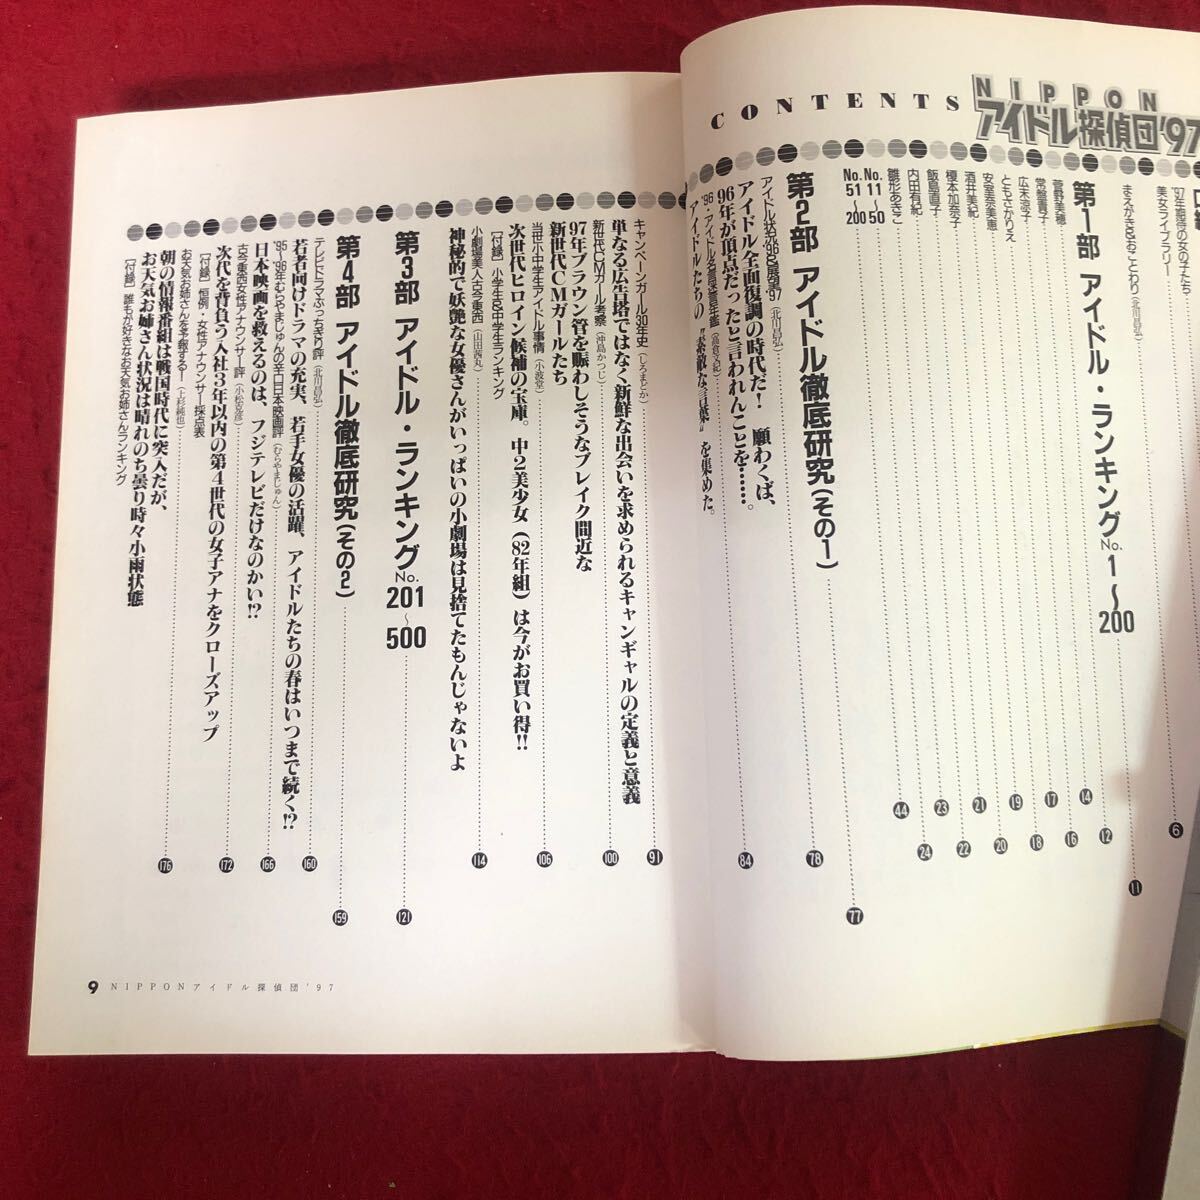 CONTENTS
NIPPON
アイドル探偵団'97
'97年期待の女の子たち
美女ライブラリー
6
まえがき&おことわり(北川昌弘)
11
第1部 アイドル・ランキングNo.1〜200
12
菅野美穂
14
常盤貴子
16
広末涼子
17
ともさかりえ
18
安室奈美恵
19
酒井美紀
20
榎本加奈子
21
飯島直子
22
内田有紀
23
雛形あきこ
24
No.11〜50
No.51〜200
44
77
第2部 アイドル徹底研究(その1)
アイドル状況'96&展望'97(北川昌弘)
アイドル全面復調の時代だ! 願わくば、
96年が頂点だったと言われんことを……。
78
'96・アイドル名言迷言年鑑
アイドルたちの"素敵な言葉"を集めた。
84
キャンペーンガール30年史(しろまとか)
単なる広告塔ではなく新鮮な出会いを求められるキャンギャルの定義と意義
91
新世代CMガール考察(沖島かつじ)
97年ブラウン管を賑わしそうなブレイク間近な
新世代CMガールたち
100
当世小中学生アイドル事情(小波堂)
次世代ヒロイン候補の宝庫。中2美少女(82年組)は今がお買い得!!
[付録]小学生&中学生ランキング
106
小劇場美人古今東西(山田茜丸)
神秘的で妖艶な女優さんがいっぱいの小劇場は見捨てたもんじゃないよ
114
第3部 アイドル・ランキングNo.201〜500
121
第4部 アイドル徹底研究(その2)
159
テレビドラマぶっちぎり評(北川昌弘)
若者向けドラマの充実、若手女優の活躍、アイドルたちの春はいつまで続く!?
160
'95〜'96年むらやまじゅんの辛口日本映画評(むらやまじゅん)
日本映画を救えるのは、フジテレビだけなのかい!?
166
古今東西女性アナウンサー評(小松克彦)
次代を背負う入社3年以内の第4世代の女子アナをクローズアップ
[付録]恒例・女性アナウンサー採点表
172
お天気お姉さんを予報する!(上杉純也)
朝の情報番組は戦国時代に突入だが、
お天気お姉さん状況は晴れのち曇り時々小雨状態
[付録]誰もが好きなお天気お姉さんランキング
176
9 NIPPONアイドル探偵団'97